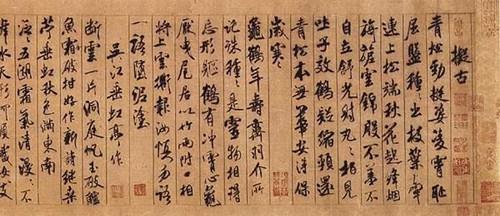 擬古
青松勁挺姿凌霄恥
屈盤種種出枝葉牽
連上松端秋花起絳烟
旖旎雲錦殷不羞不
自立舒光射丸丸柏見
吐子效鶴疑縮頸還
青松本無華安得保
歲寒
龜鶴年壽齊羽介所
託殊種種是靈物相得
忘形軀鶴有沖霄心龜
厭曳尾居以竹兩附口相
將上雲衢報汝慎勿語
一語墮泥塗
吳江垂虹亭作
斷雲一片洞庭帆玉破鱸
魚霜破柑好作新詩繼桑
苧垂虹秋色滿東南
泛泛五湖霜氣清漫漫不
辨水天形何須織女支